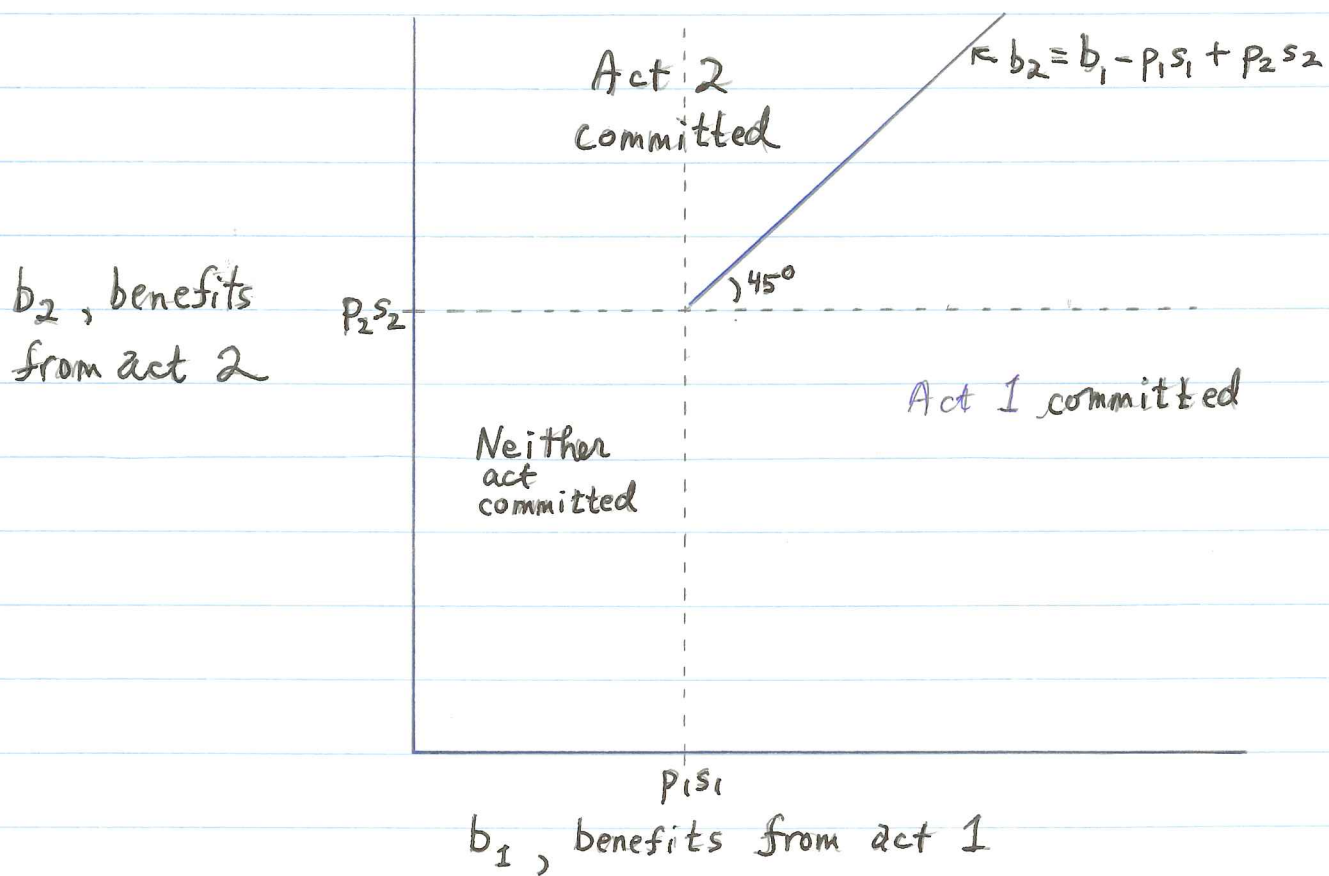 Act 2
committed
b₂ = b₁ - p₁s₁ + p₂s₂
45°
b₂, benefits
from act 2
p₂s₂
Act 1 committed
Neither
act
committed
p₁s₁
b₁, benefits from act 1